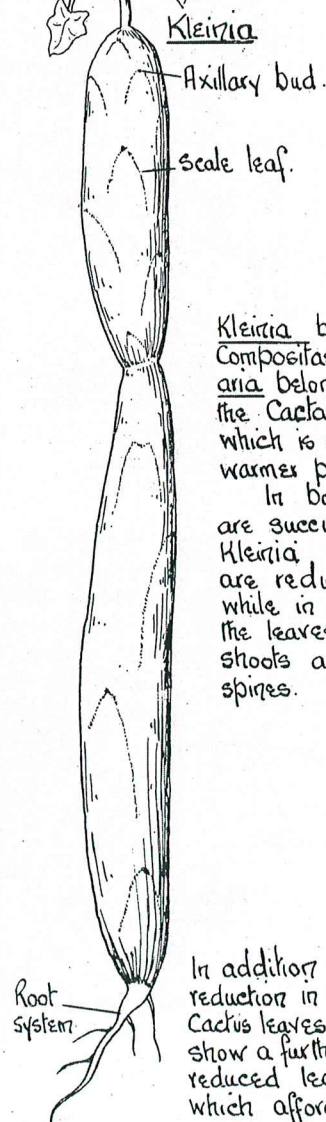 Kleinia
Axillary bud.
Scale leaf.
Kleinia b
Compositas
aria belon
the Cacta
which is
warmer p
In bo
are succu
Kleinia
are redu
while in
the leaves
shoots a
spines.
Root
System
In addition
reduction in
Cactus leaves
show a furth
reduced lea
which affor